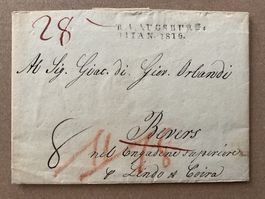 28
R.4.AUGSBURG.
11 IAN. 1816.
Al Sig. Giac. di Gio. Orlandi
Bevers
8 nel Engadina Superiore
p Lindo & Coira